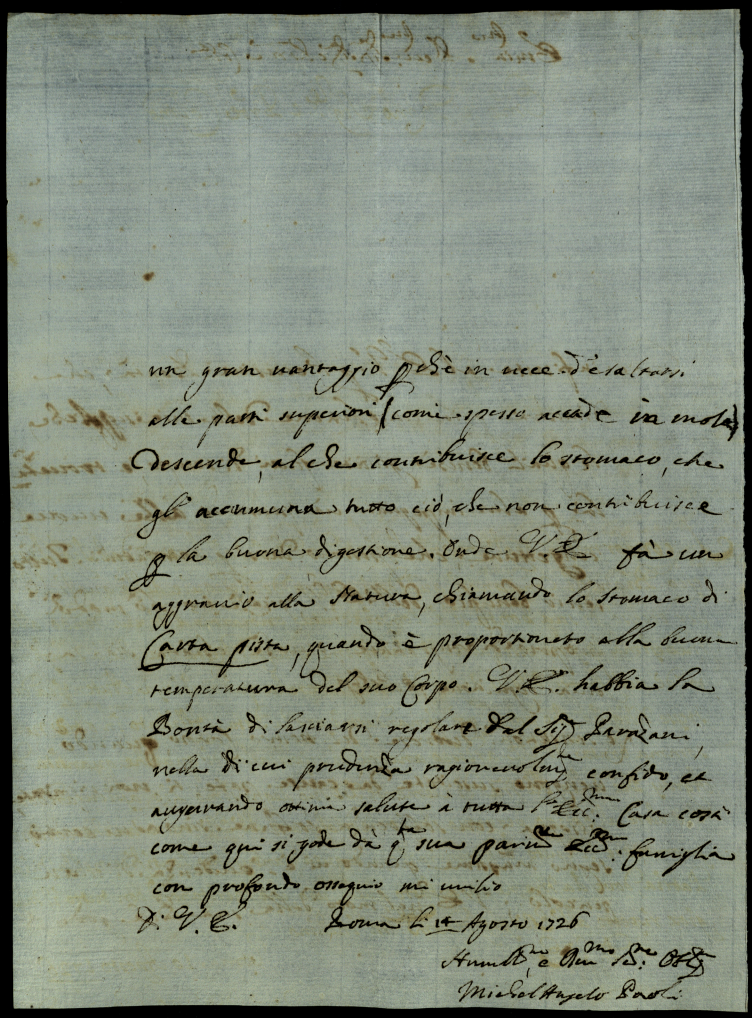 un gran vantaggio p chè in vece d'esaltarsi
alle parti superiori (come spesso accade in molti)
descende, al che contribuisce lo stomaco, che
gl' accumuna tutto ciò, che non contribuisce
p la buona digestione. Onde V. E. fà un
aggravio alla Natura, chiamando lo stomaco di
Carta pista, quando è proportionato alla buona
temperatura del suo Corpo. V. E. habbia la
Bontà di lasciarsi regolare dal Sig.r Parazani,
nella di cui prudenza ragionevolm.te confido, et
augurando ottima salute à tutta l' Ecc.ma Casa costì
come qui si gode dà q.ta sua parim.te Ecc.ma famiglia
con profondo ossequio mi umilio
Di V. E. Roma li 14 Agosto 1726
Humil.mo, e
Michel Angelo Paoli